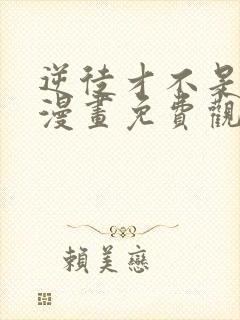 逆徒才不呆
漫畫免費觀
賴美戀